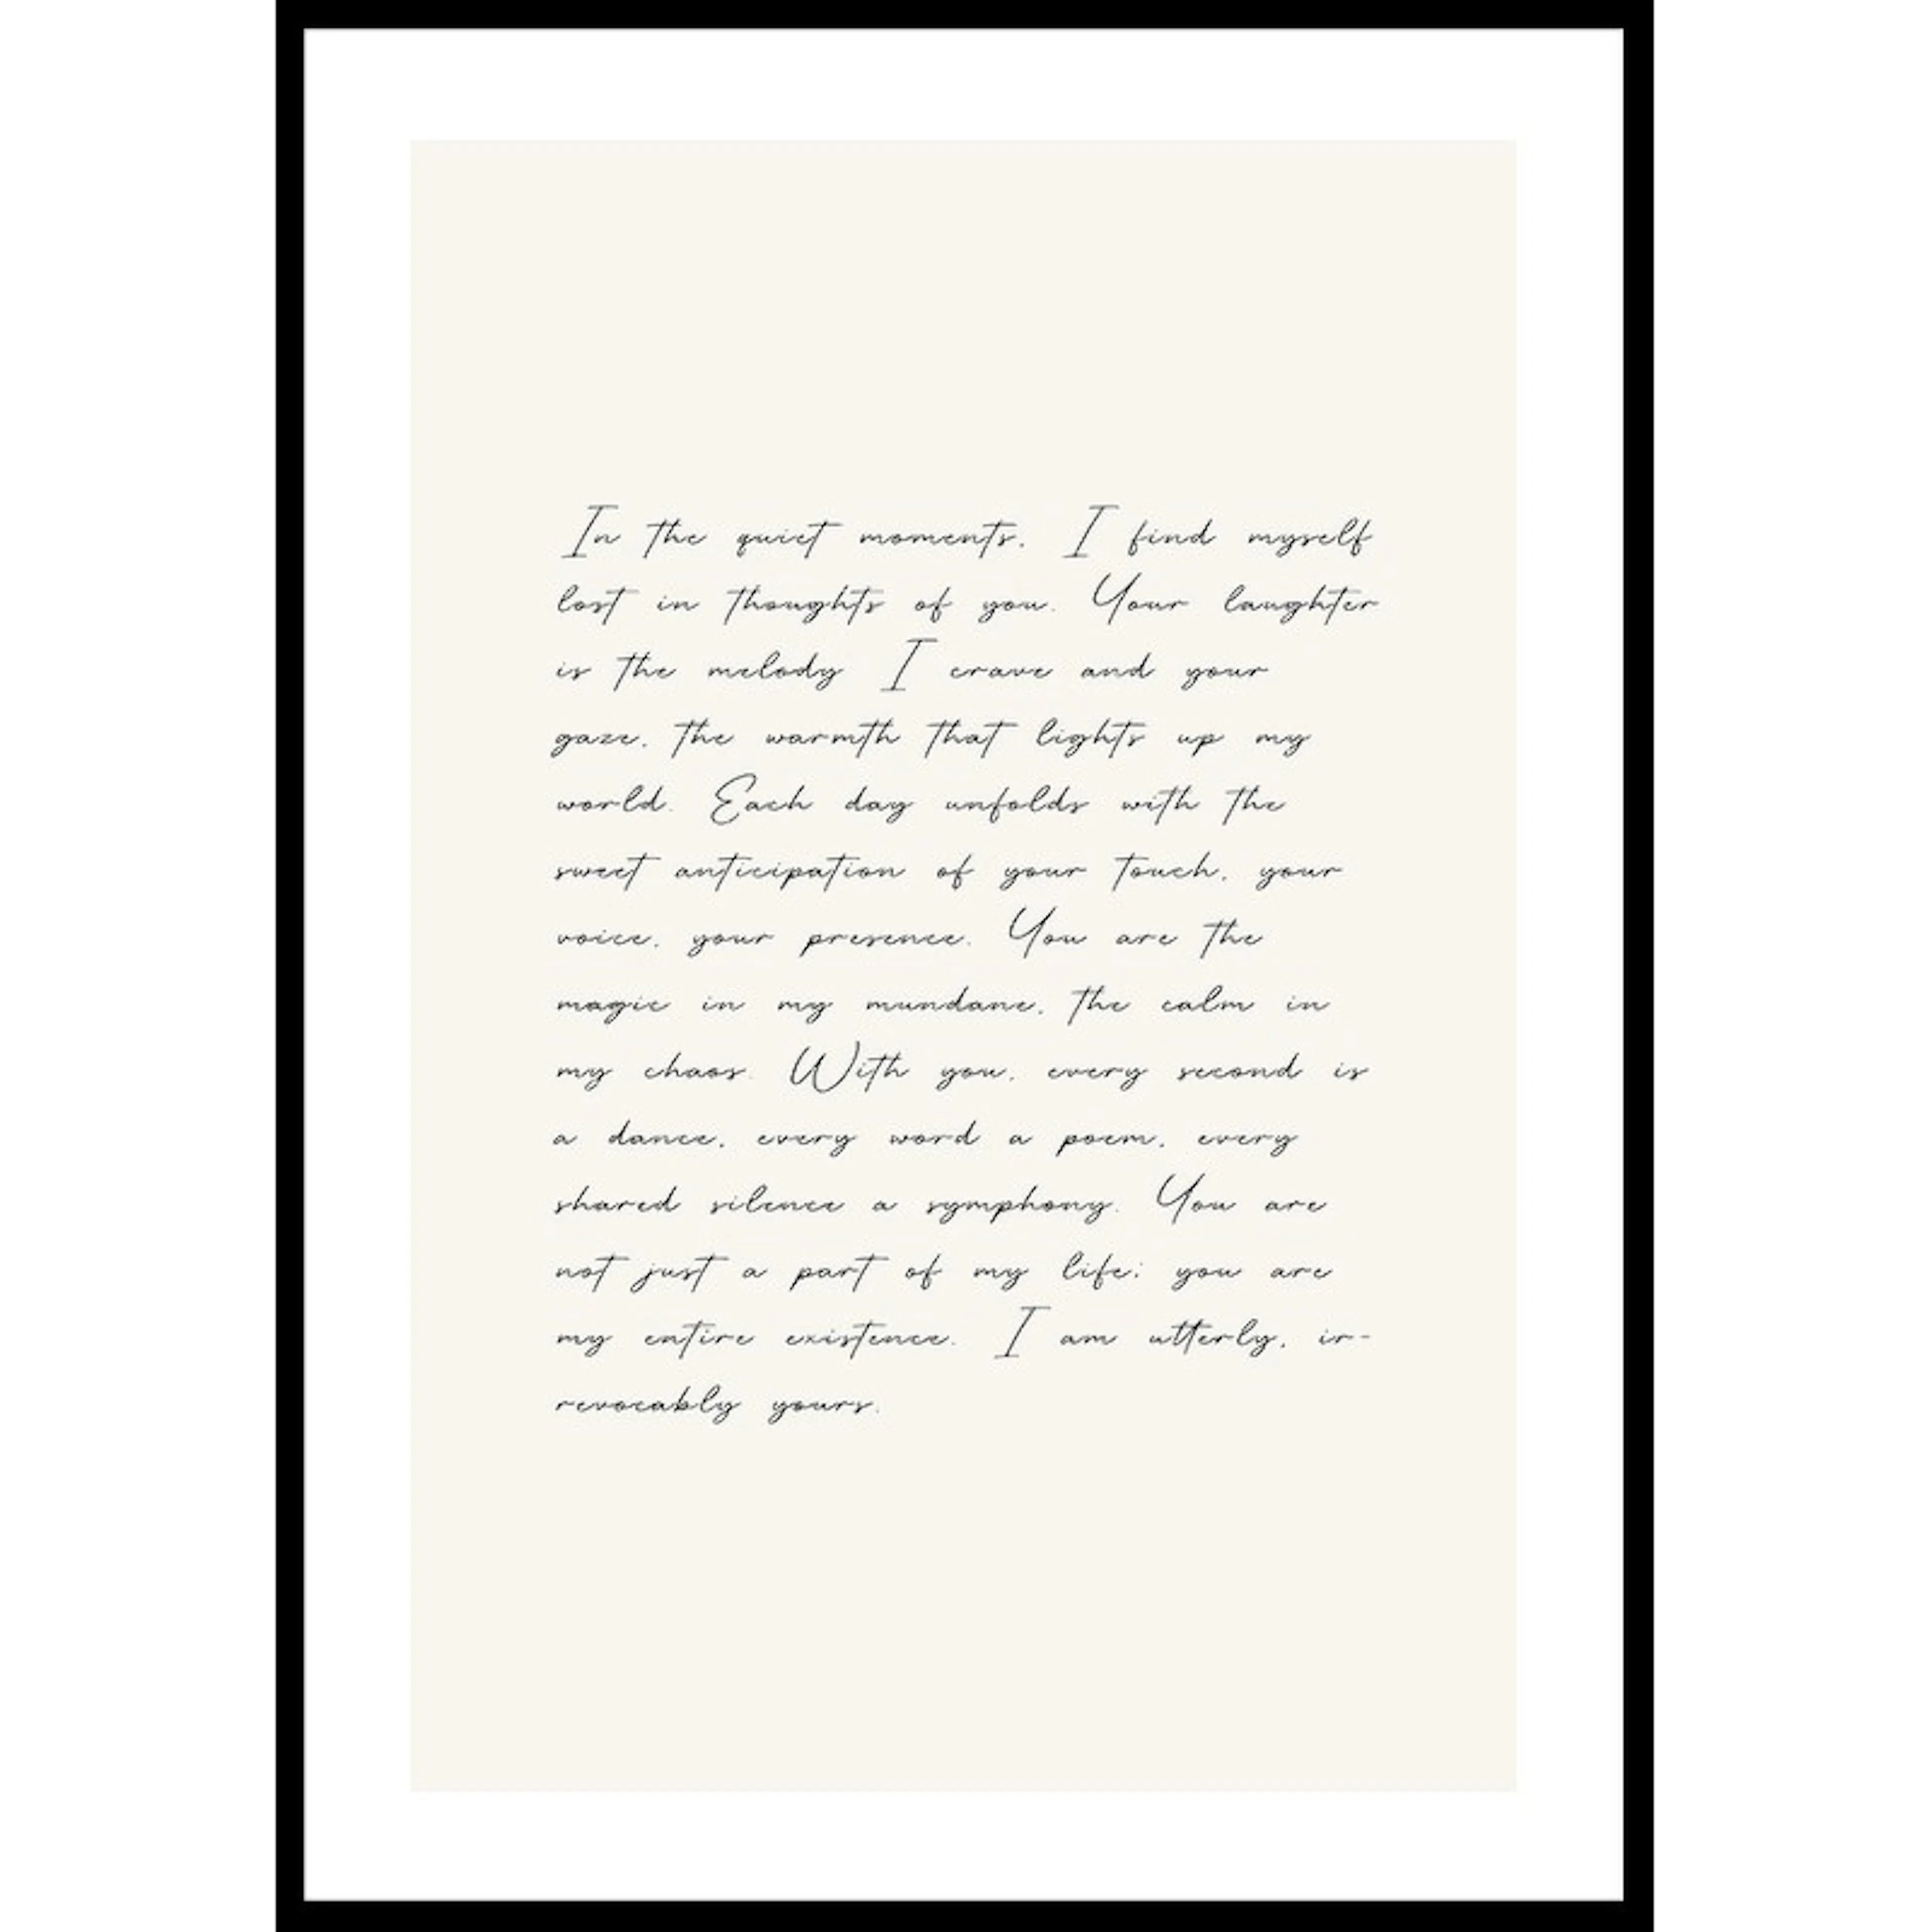 In the quiet moments, I find myself
lost in thoughts of you. Your laughter
is the melody I crave and your
gaze, the warmth that lights up my
world. Each day unfolds with the
sweet anticipation of your touch, your
voice, your presence. You are the
magic in my mundane, the calm in
my chaos. With you, every second is
a dance, every word a poem, every
shared silence a symphony. You are
not just a part of my life; you are
my entire existence. I am utterly, ir-
revocably yours.